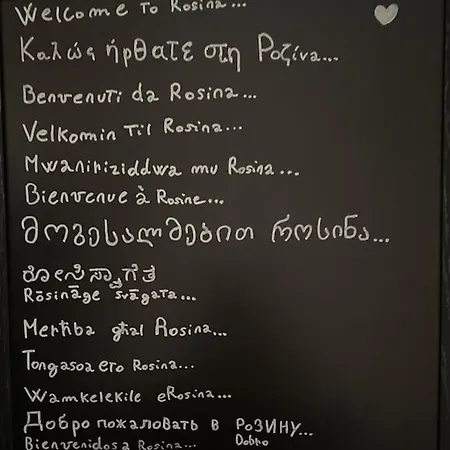 Welcome To Rosina...
Καλώς ήρθατε στη Ροζίνα...
Benvenuti da Rosina...
Velkomin Til Rosina...
Mwaniriziddwa mu Rosina...
Bienvenue à Rosine...
მოგესალმებით როსინა...
ರೋಸಿ ಸ್ವಾಗತ
Rōsināge svāgata...
Merħba għal Rosina...
Tongasoa eto Rosina...
Wamkelekile eRosina...
Добро пожаловать в РОЗИНУ...
Bienvenidos a Rosina...
Dobro